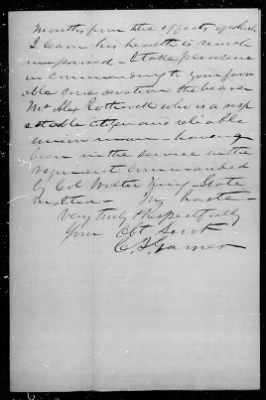 months from the effects of which
I learn his health is much
impaired – I take pleasure
in commending to your favor
able consideration the bearer
Mr Alex who is a resp
ectable citizen and reliable
union man – having
been in the service in the
regiment commanded
by Col Walter King – State
militia – In haste –
Very truly & respectfully
Your Obt Servt
C. F. Garner